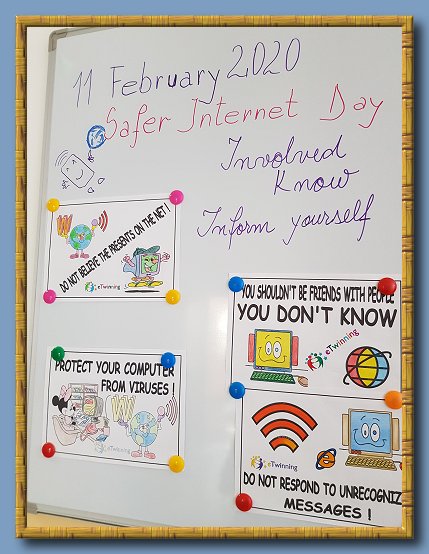 11 February 2020
Safer Internet Day
Involved
Know
Inform yourself
W
DO NOT BELIEVE THE PRESENTS ON THE NET !
eTwinning
YOU SHOULDN'T BE FRIENDS WITH PEOPLE
YOU DON'T KNOW
eTwinning
PROTECT YOUR COMPUTER
FROM VIRUSES !
W
eTwinning
eTwinning
DO NOT RESPOND TO UNRECOGNIZ
MESSAGES !